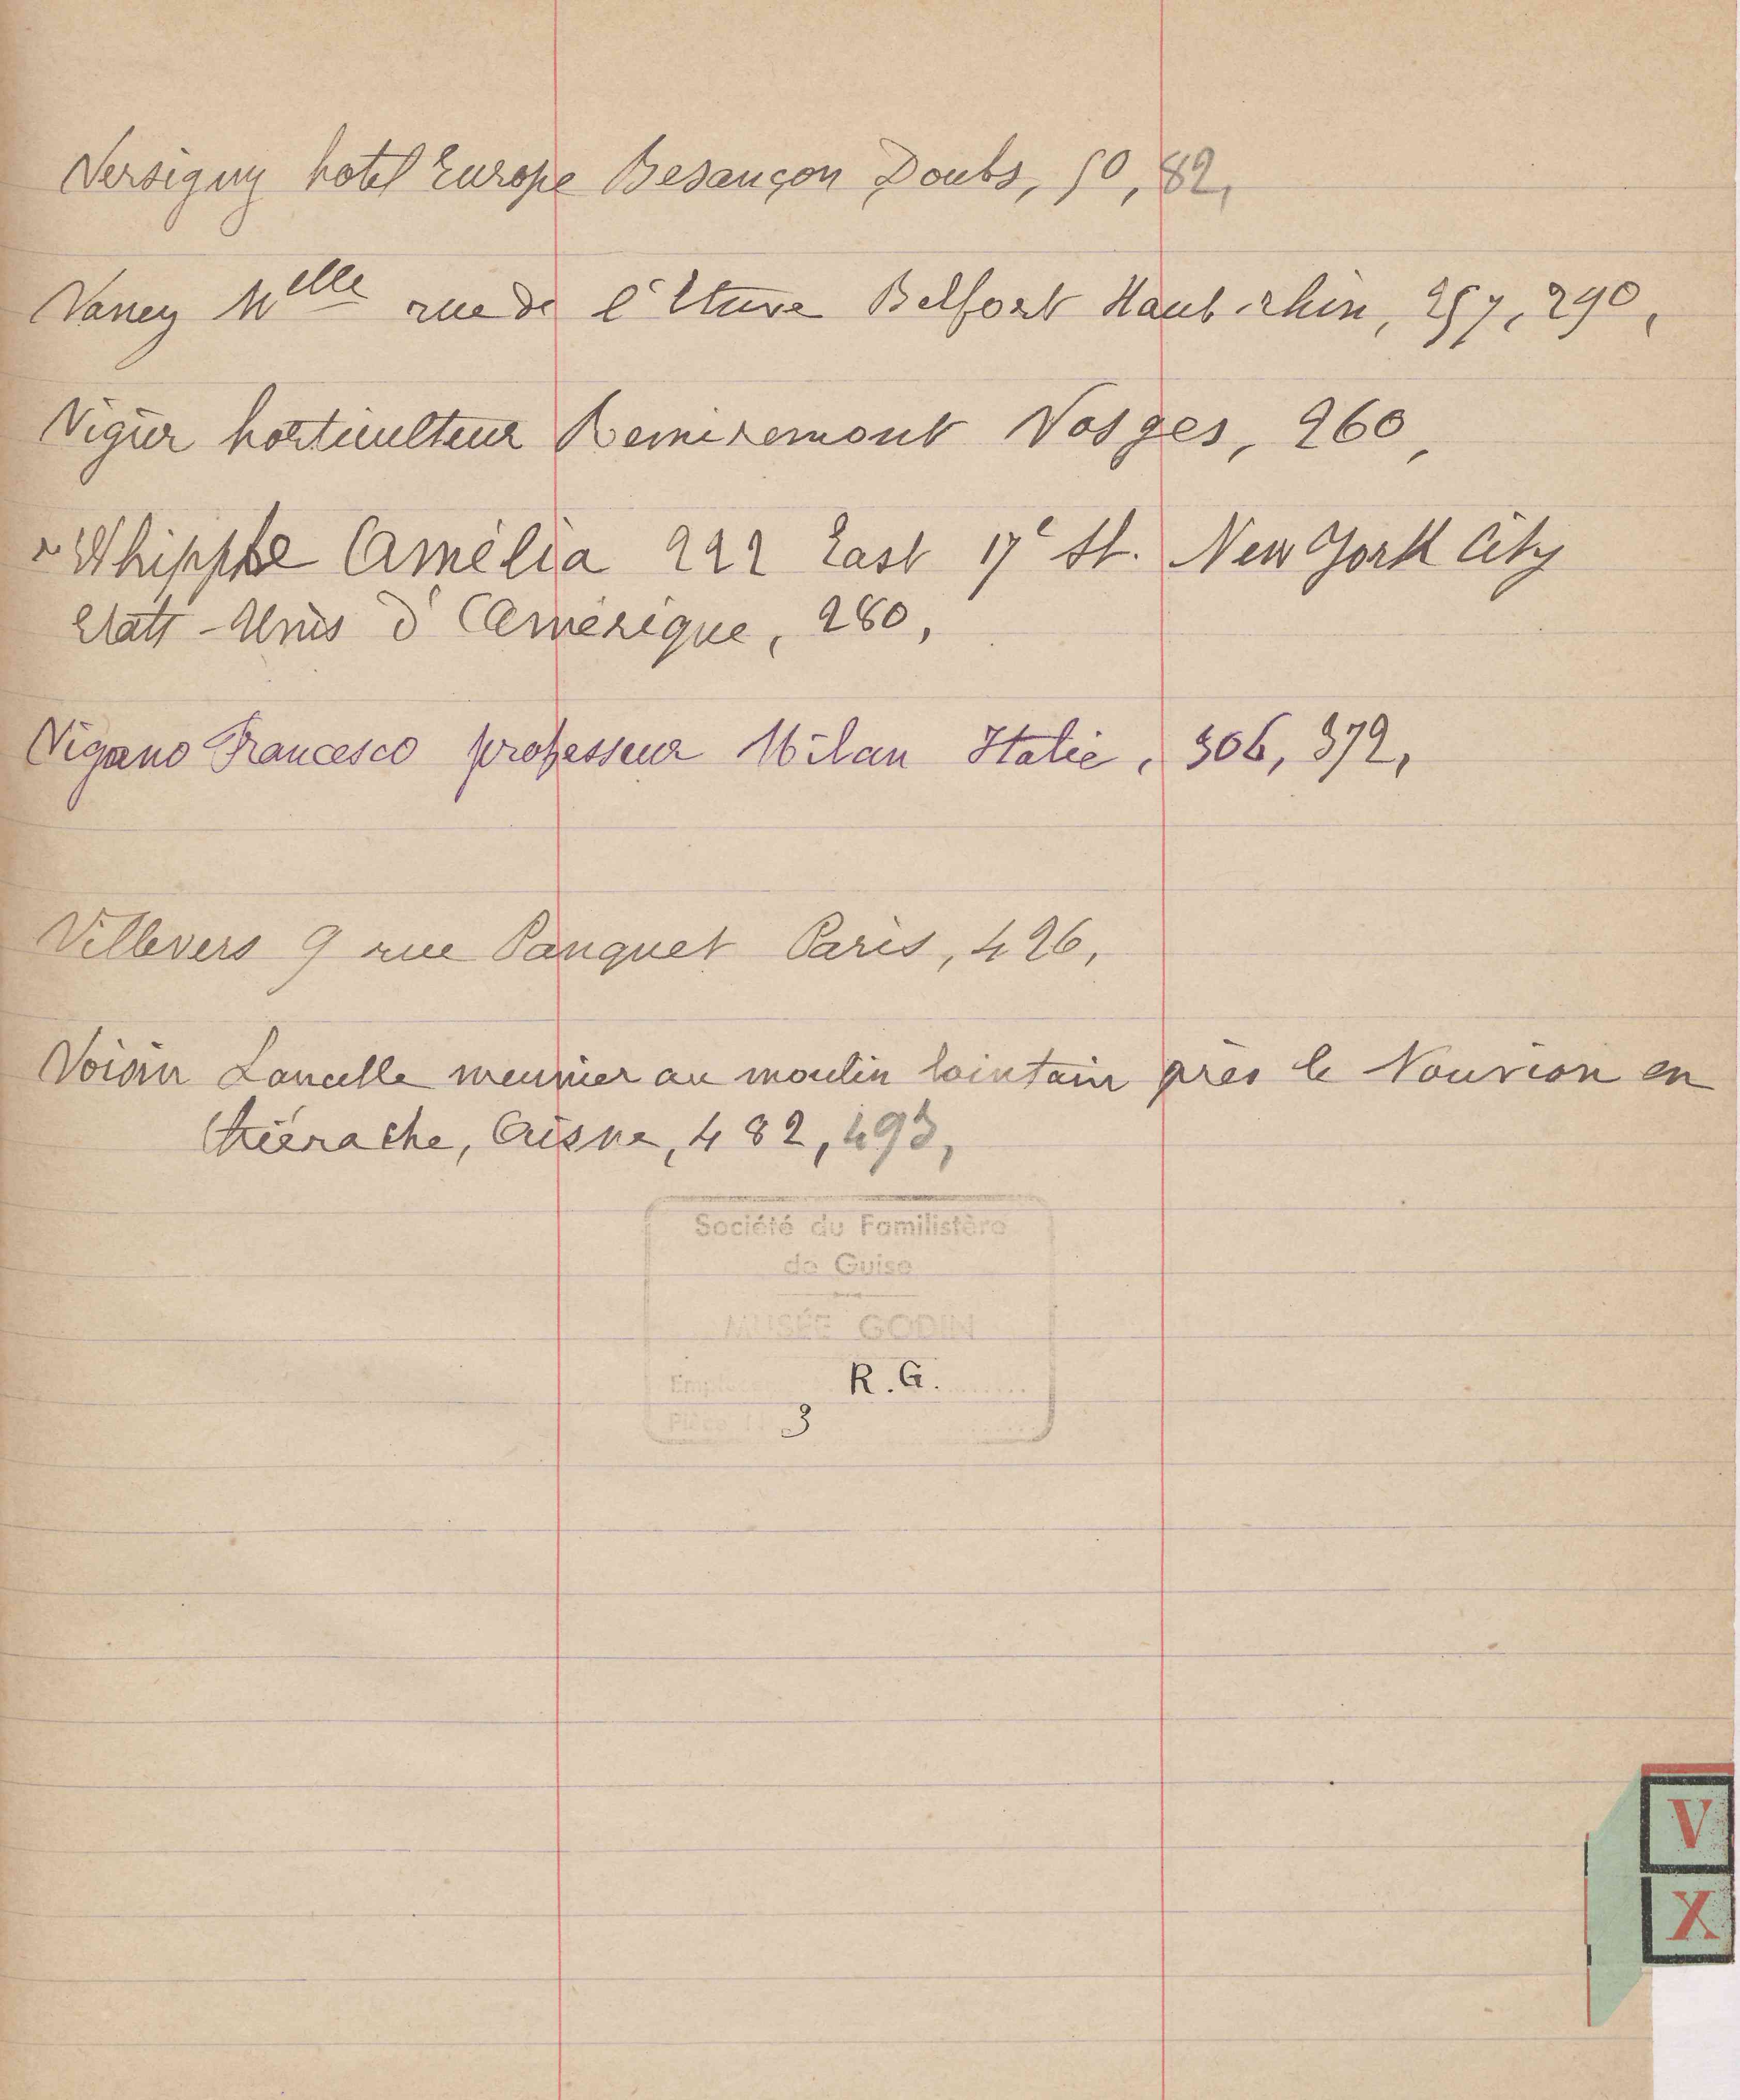 Versigny hotel Europe Besançon Doubs, 50, 82,
Vaney Melle rue de l'Etuve Belfort Haut-rhin, 257, 290,
Vigier horticulteur Remiremont Vosges, 260,
Whipple Amélia 222 East 17e St. New York City
Etats-Unis d'Amérique, 280,
Vigano Francesco professeur Milan Italie, 306, 372,
Villevers 9 rue Pauquet Paris, 426,
Voisin Lancelle meunier au moulin lointain près le Nouvion en
Thiérache, Aisne, 482, 493,
Société du Familistère
de Guise
MUSÉE GODIN
R. G.
3
V
X